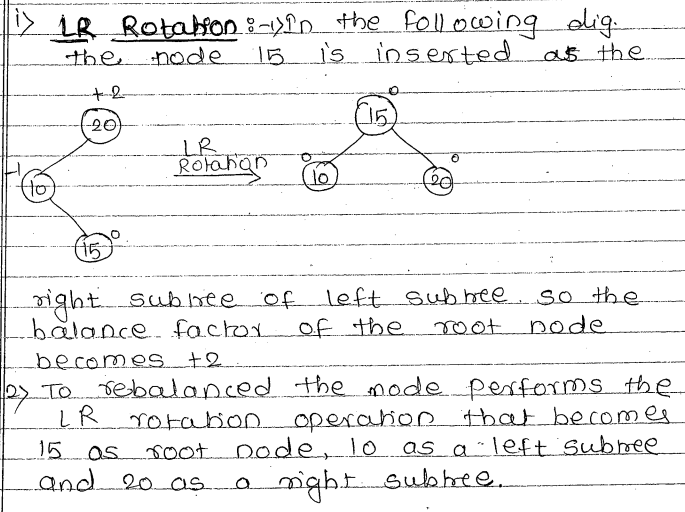 i> LR Rotation :- 1) In the following dig.
the node 15 is inserted as the
+2
20
-1
10
15
0
LR
Rotation
0
15
0
10
0
20
right subtree of left subtree. so the
balance factor of the root node
becomes +2
2> To rebalanced the node performs the
LR rotation operation that becomes
15 as root node, 10 as a left subtree
and 20 as a right subtree.